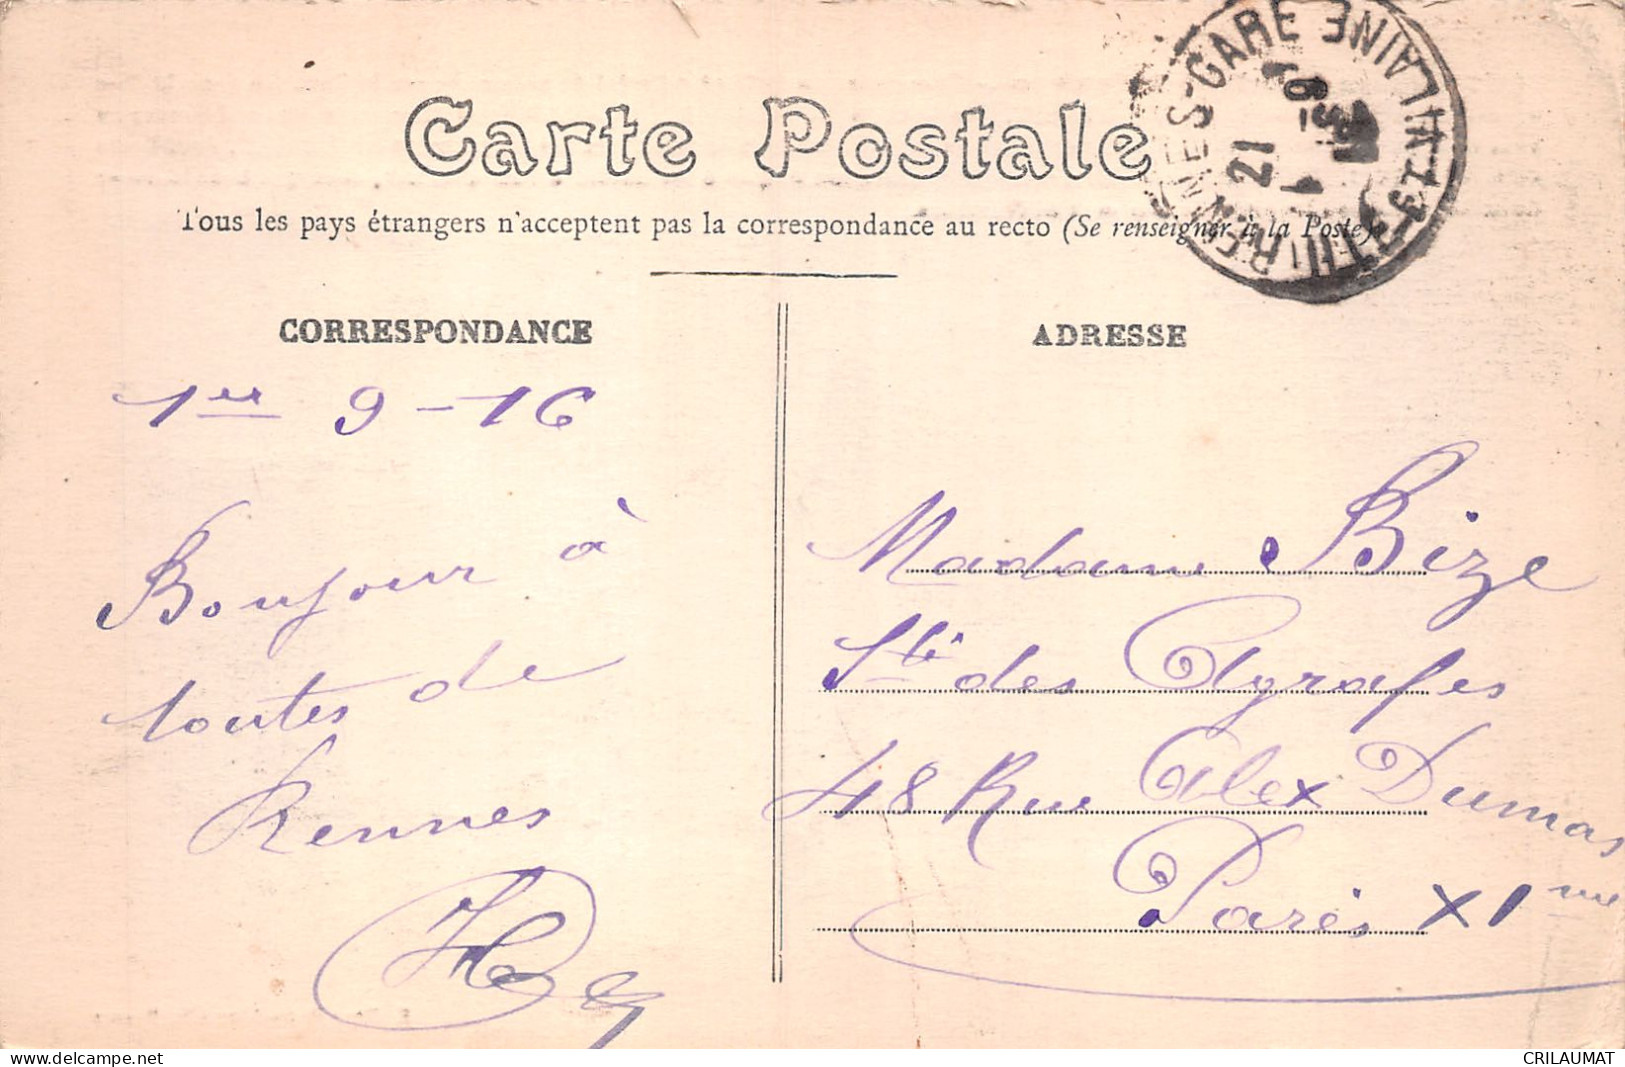 Carte Postale
Tous les pays étrangers n'acceptent pas la correspondance au recto (Se renseigner à la Poste)
RENNES-GARE
ILLE-ET-VILAINE
21
1-9
CORRESPONDANCE
ADRESSE
1er 9-16
Bonjour à
toutes de
Rennes
Madame Bize
Sté des Agrafes
48 Rue Alex Dumas
Paris XIme
CRILAUMAT